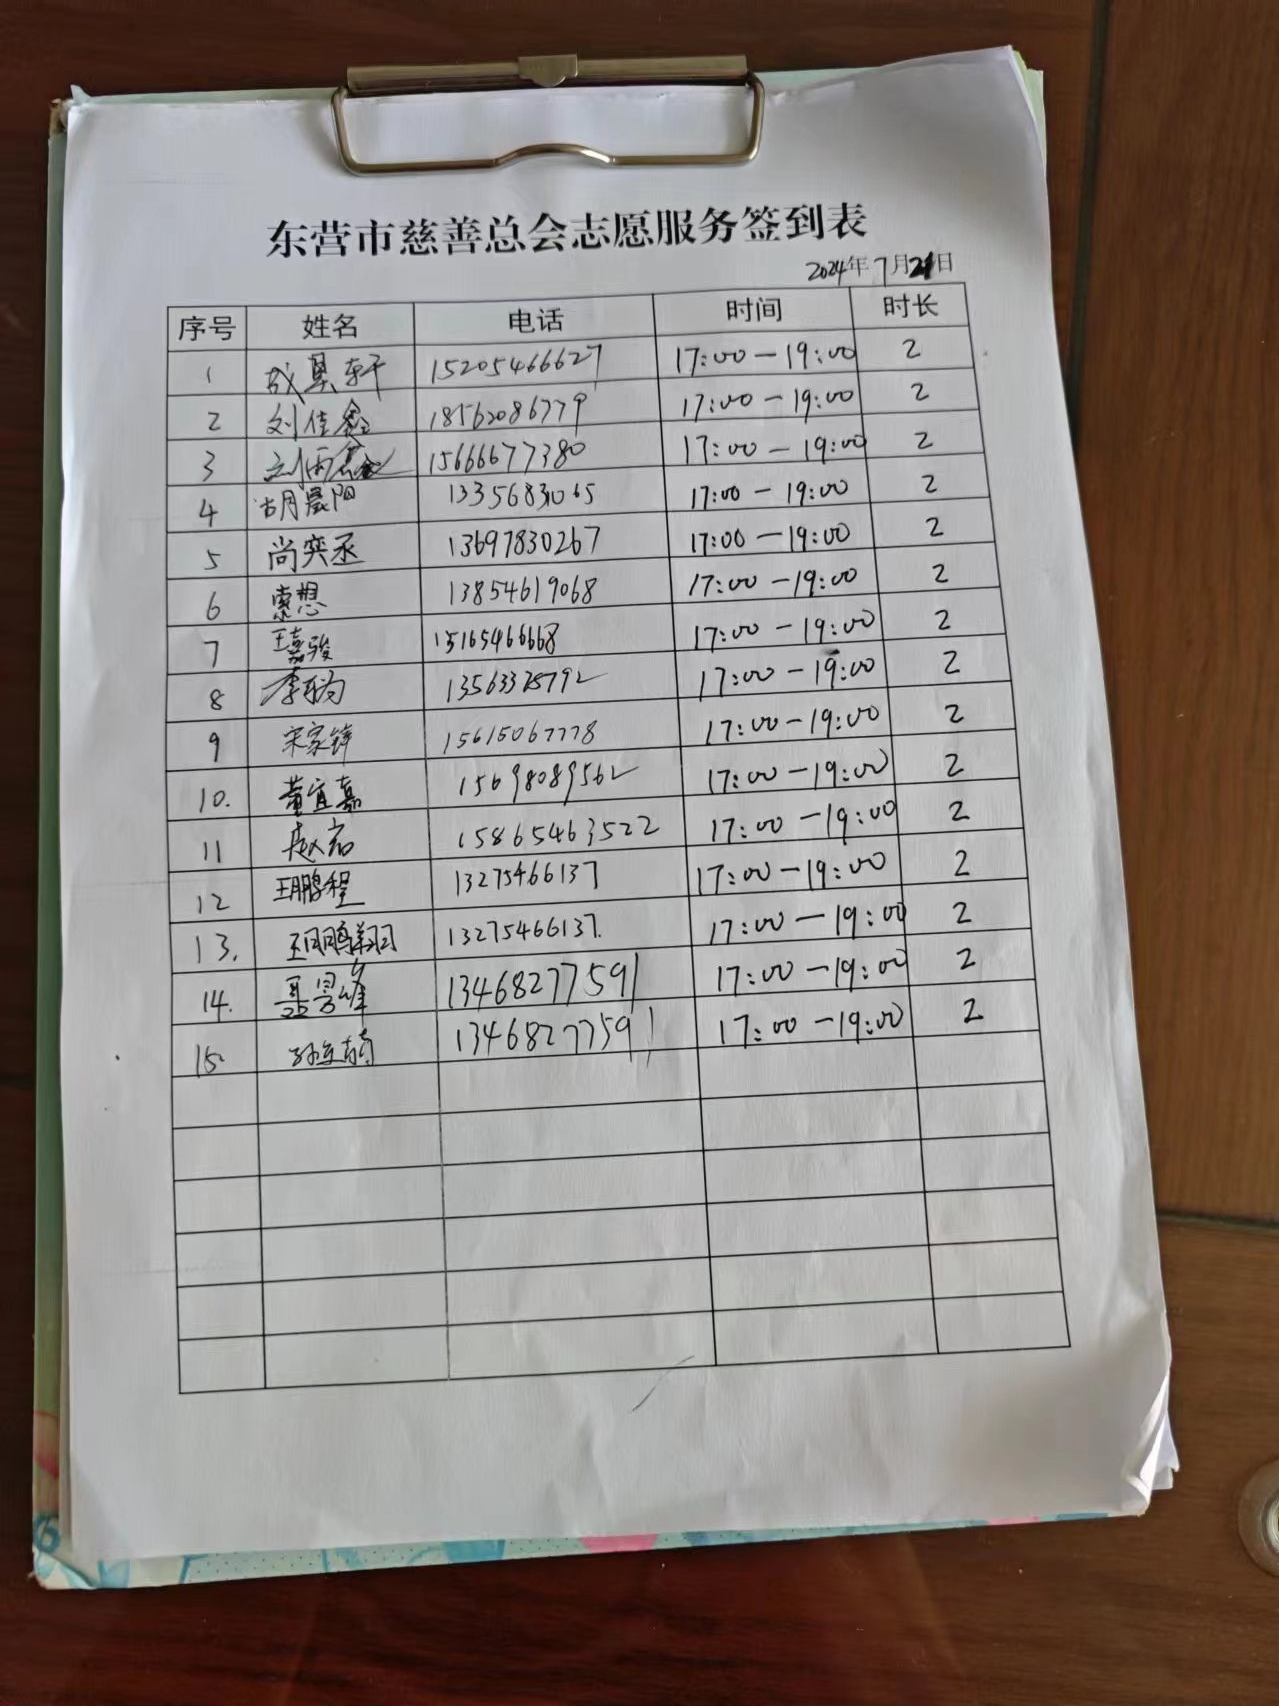 东营市慈善总会志愿服务签到表
2024年7月21日
序号 姓名 电话 时间 时长
1 成昊轩 15205466627 17:00-19:00 2
2 刘佳鑫 18562086779 17:00-19:00 2
3 刘雨鑫 15666677380 17:00-19:00 2
4 胡晨阳 1335683065 17:00-19:00 2
5 尚奕丞 13697830267 17:00-19:00 2
6 索想 13854619068 17:00-19:00 2
7 王嘉骏 15165466668 17:00-19:00 2
8 李 17:00-19:00 2
9 宋家锋 15615067778 17:00-19:00 2
10. 董宜嘉 15698089562 17:00-19:00 2
11 赵岩 15865463522 17:00-19:00 2
12 王鹏程 13275466137 17:00-19:00 2
13. 王鹏翔 13275466137. 17:00-19:00 2
14. 聂 13468277591 17:00-19:00 2
15. 13468277591 17:00-19:00 2